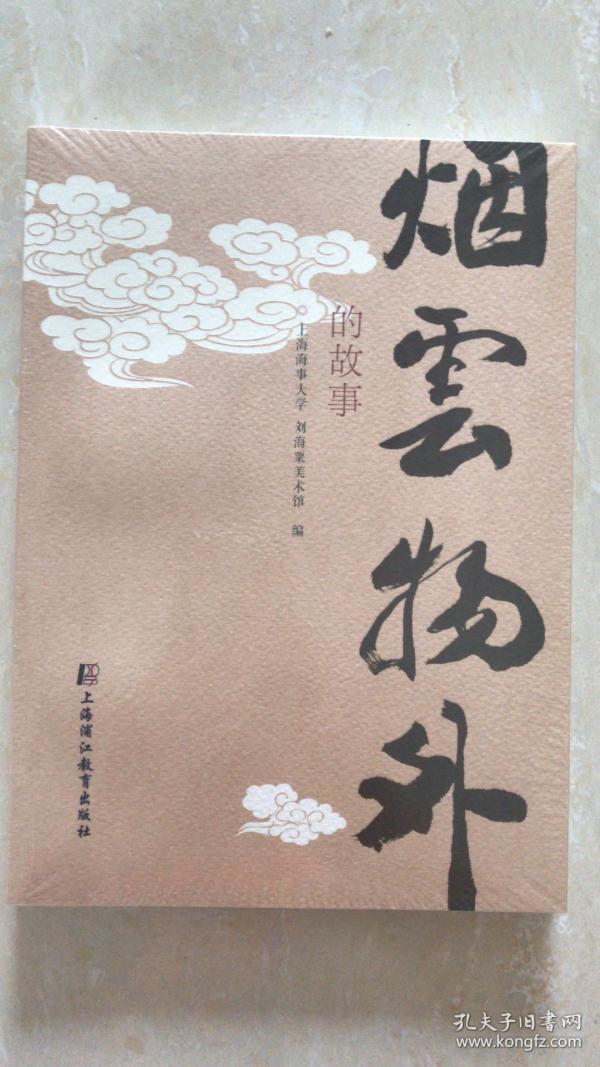 烟雲物外
的故事
上海海事大学 刘海粟美术馆 编
上海浦江教育出版社
孔夫子旧书网
www.kongfz.com